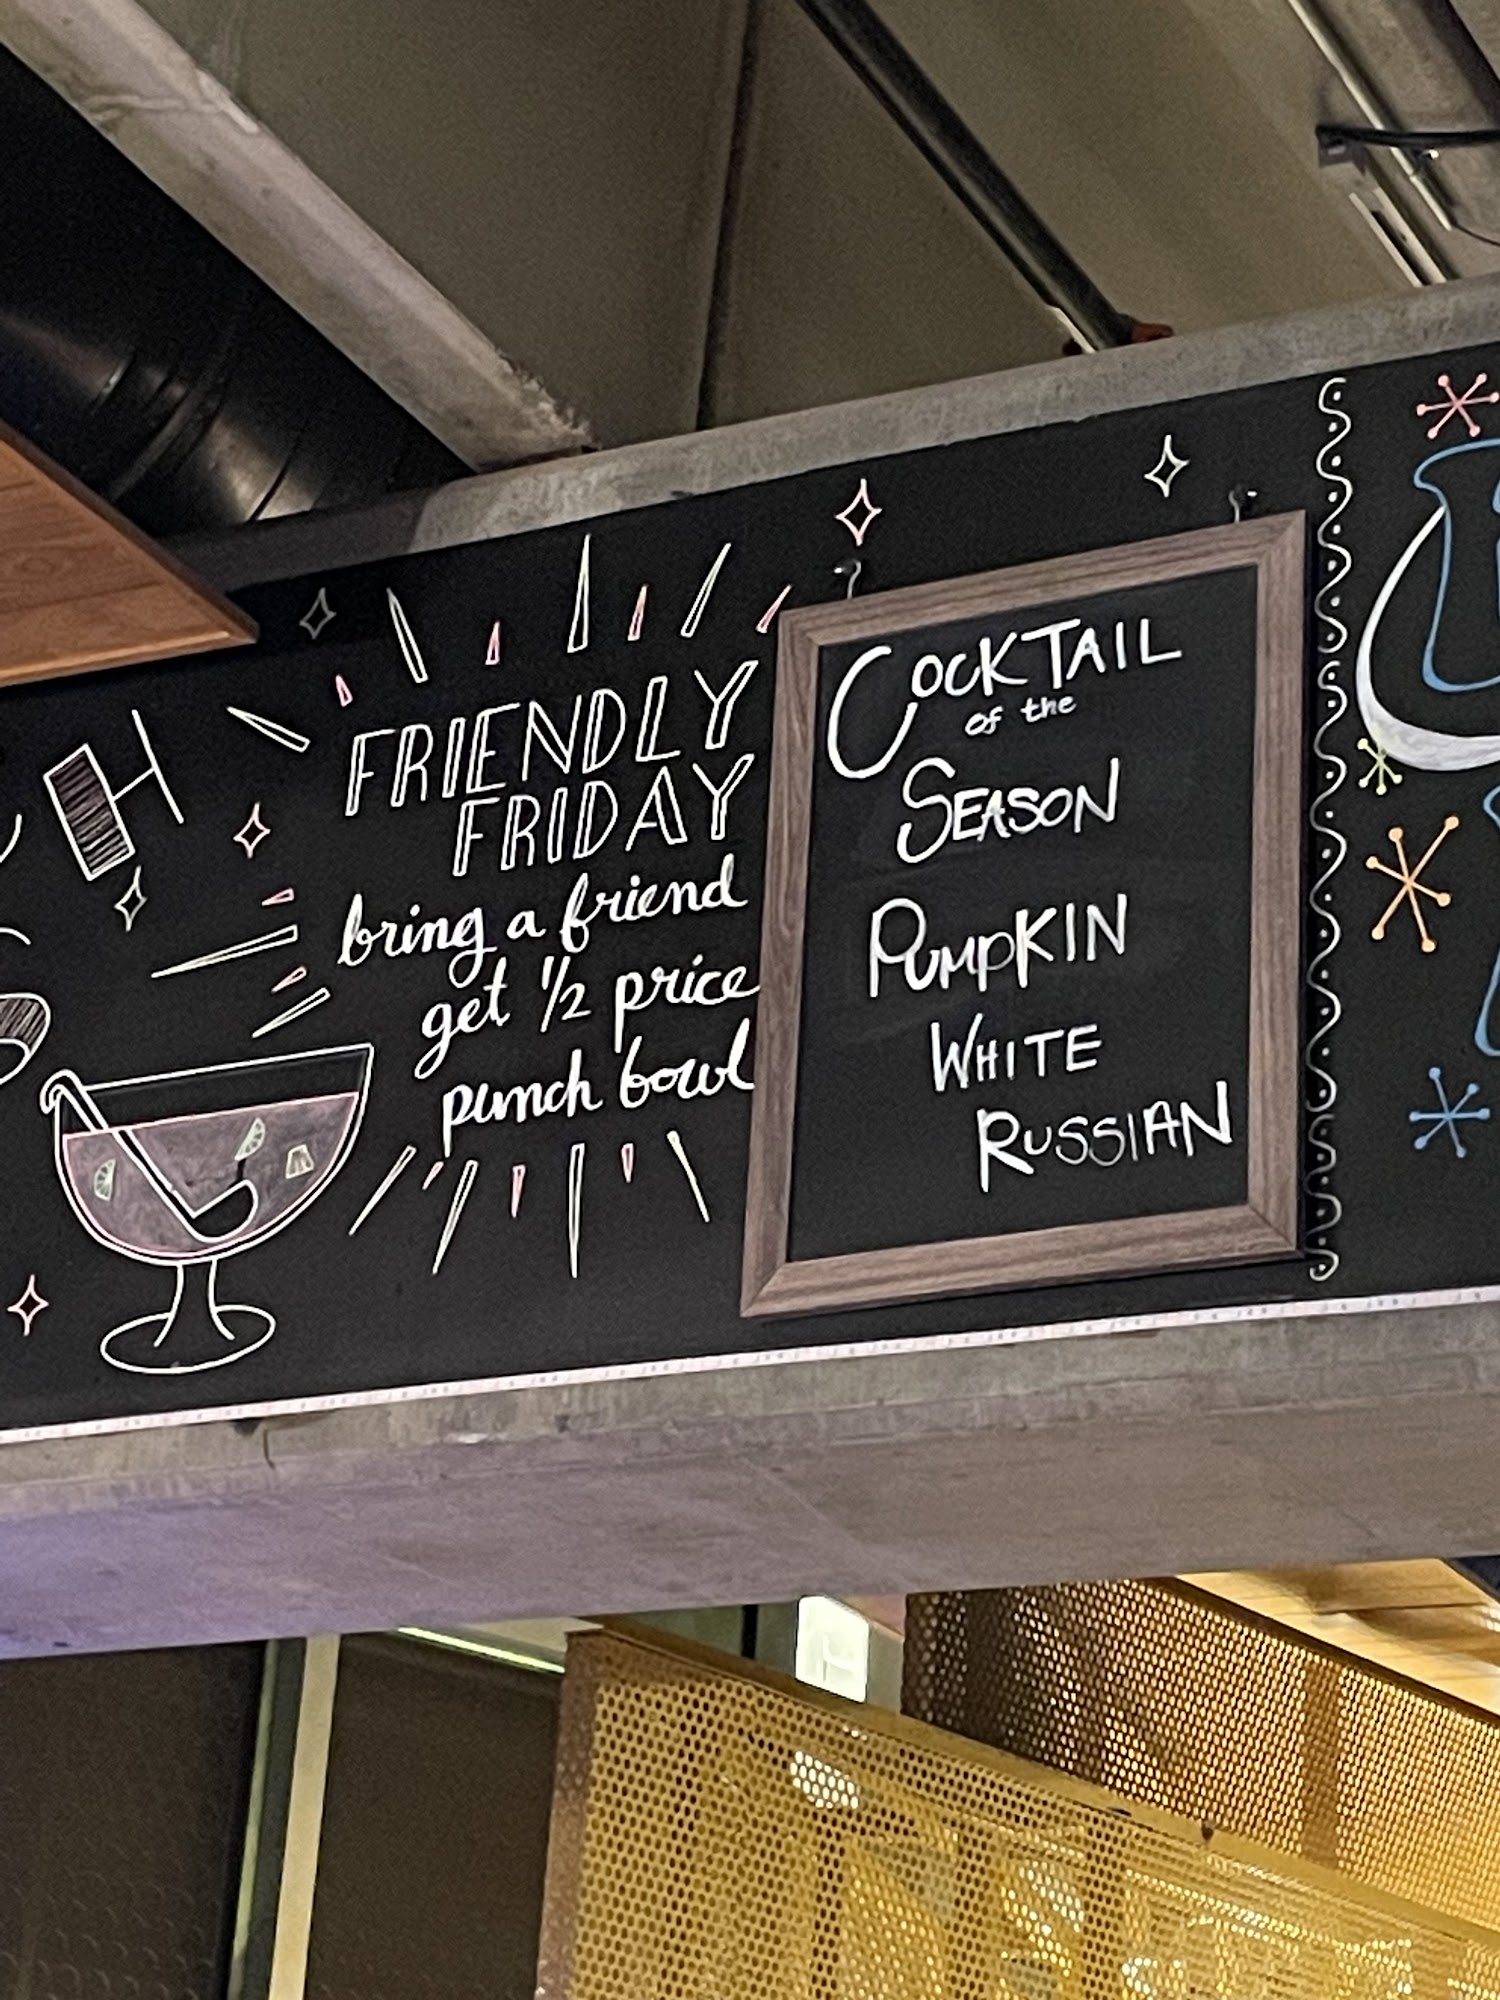 FRIENDLY
FRIDAY
bring a friend
get 1/2 price
punch bowl
COCKTAIL
of the
SEASON
PUMPKIN
WHITE
RUSSIAN